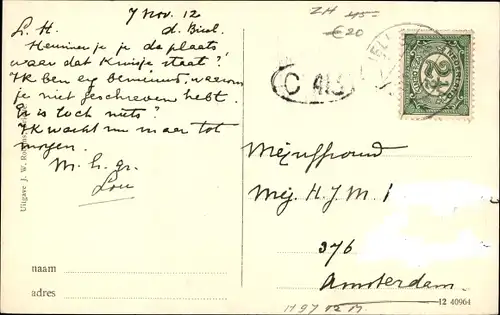 7 Nov. 12
L. H. d. Bieul.
Herinner je je de plaats,
waar dat kruisje staat?
Ik ben erg benieuwd, waarom
je niet geschreven hebt.
Er is toch niets?
Ik wacht nu maar tot
morgen.
M. h. gr.
Lou
Uitgave J. W.
naam
adres
ZH 45-
€20
2½
Mejuffrouw
Mej. H. J. M.
376
Amsterdam.
12 40964